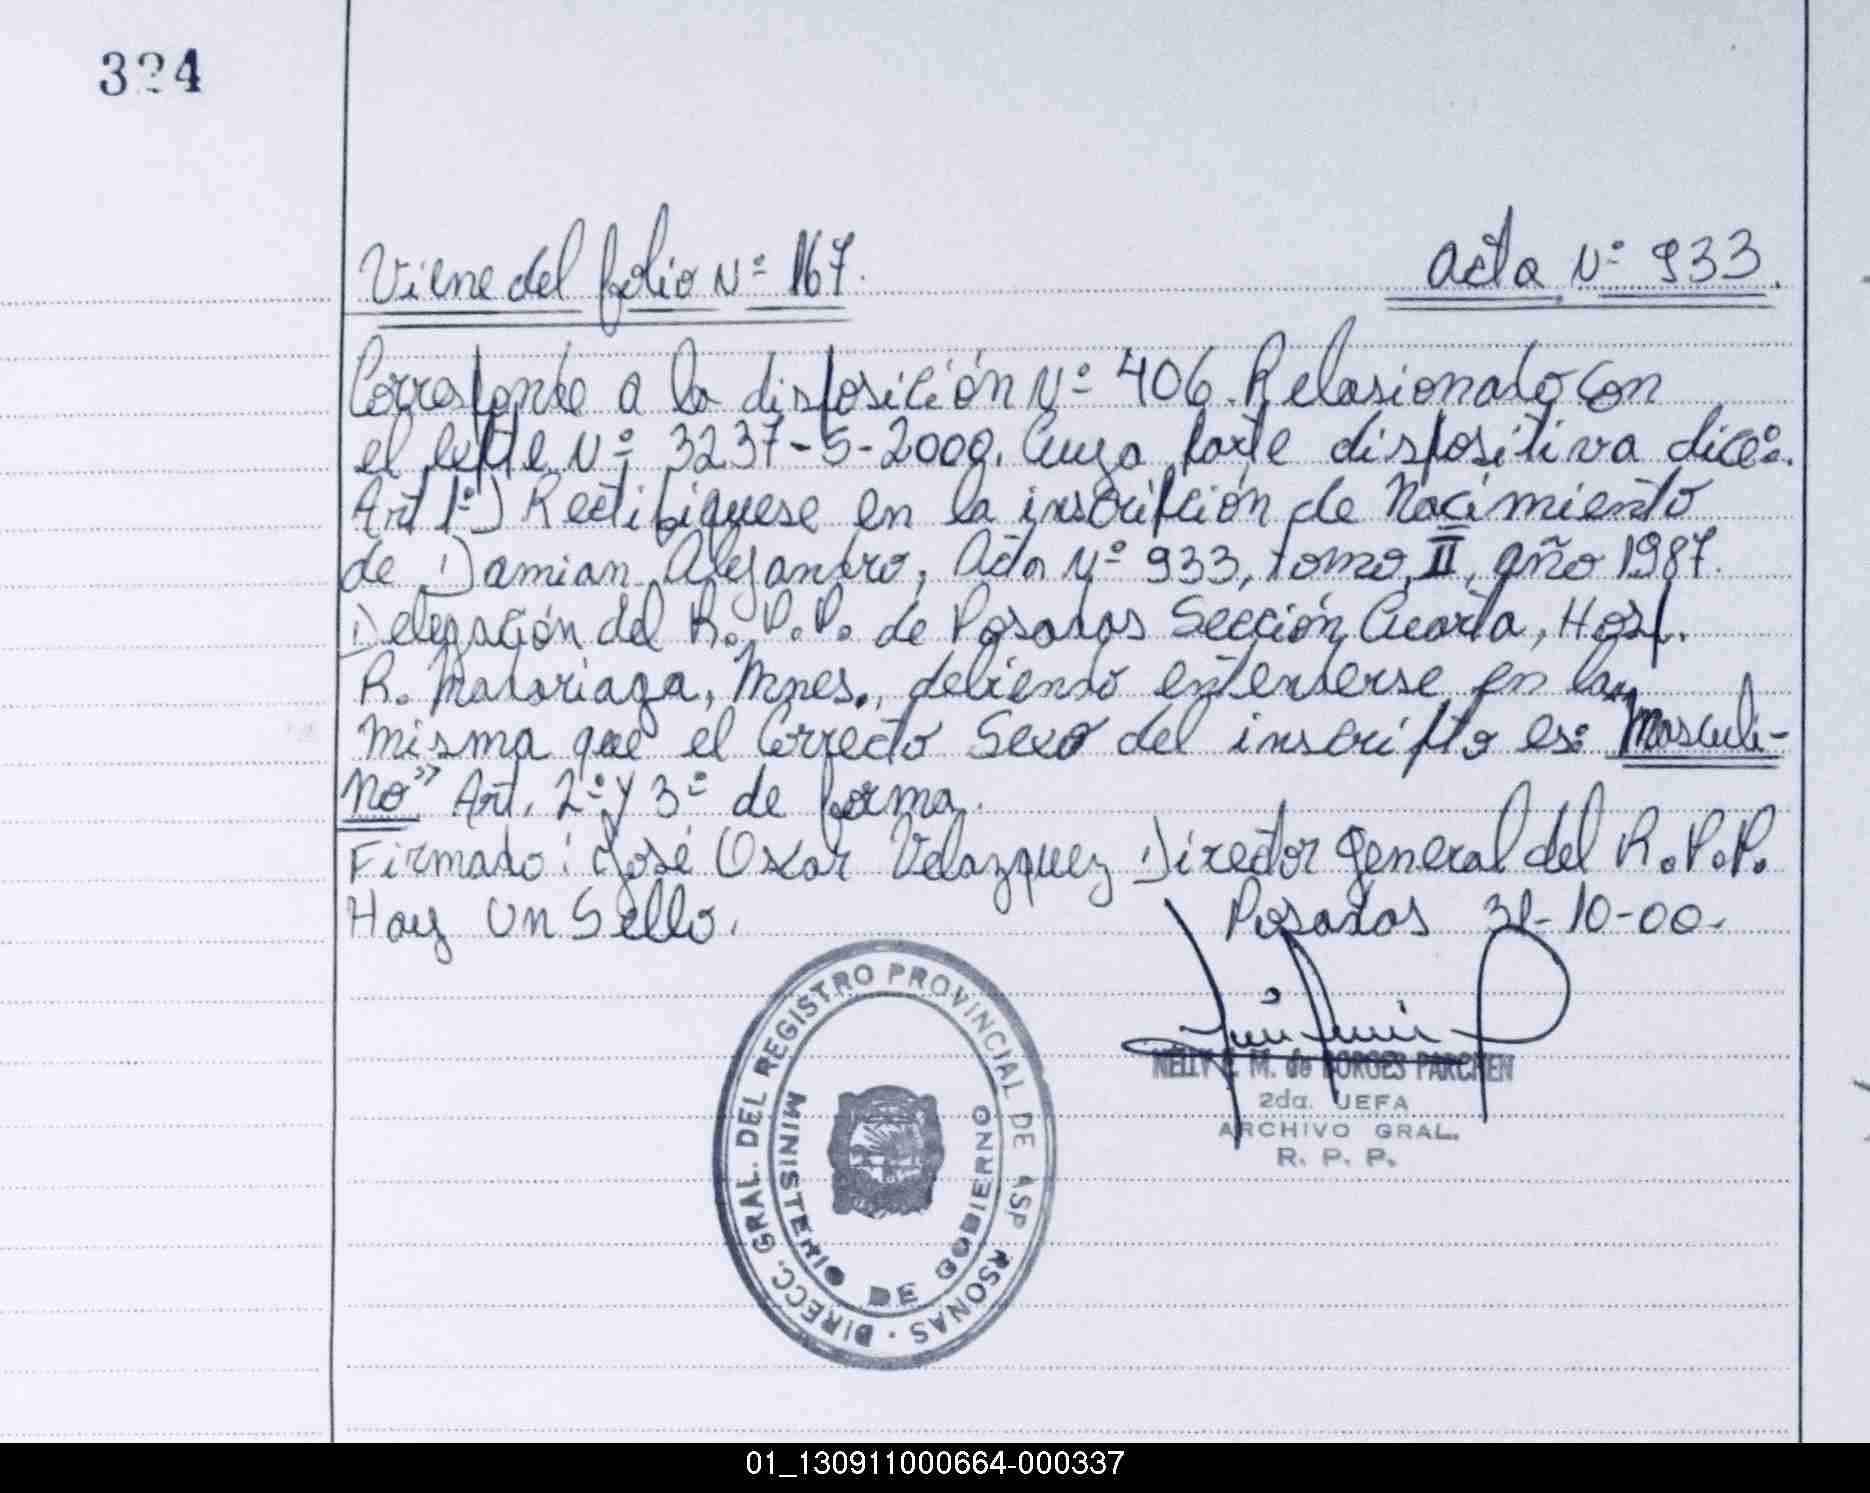 324
Viene del folio Nº 167. Acta Nº 933.
Corresponde a la disposición Nº 406. Relasionado con
el expte Nº 3237-5-2000. Cuya parte dispositiva dice:
Art 1º) Rectifiquese en la inscripción de Nacimiento
de Damian Alejandro, Acta Nº 933, tomo II, año 1987.
Delegación del R.P.P. de Posadas Sección Cuarta, Hosp.
R. Madariaga, Mnes., debiendo entenderse en la
misma que el Correcto Sexo del inscripto es: Masculi-
no" Art. 2º y 3º de forma.
Firmado: José Oscar Velazquez Director General del R.P.P.
Hay Un Sello. Posadas 31-10-00.
DIRECC. GRAL. DEL REGISTRO PROVINCIAL DE
MINISTERIO DE GOBIERNO
NELLY M. de BORGES PARCHEN
2da. JEFA
ARCHIVO GRAL.
R. P. P.
01_130911000664-000337